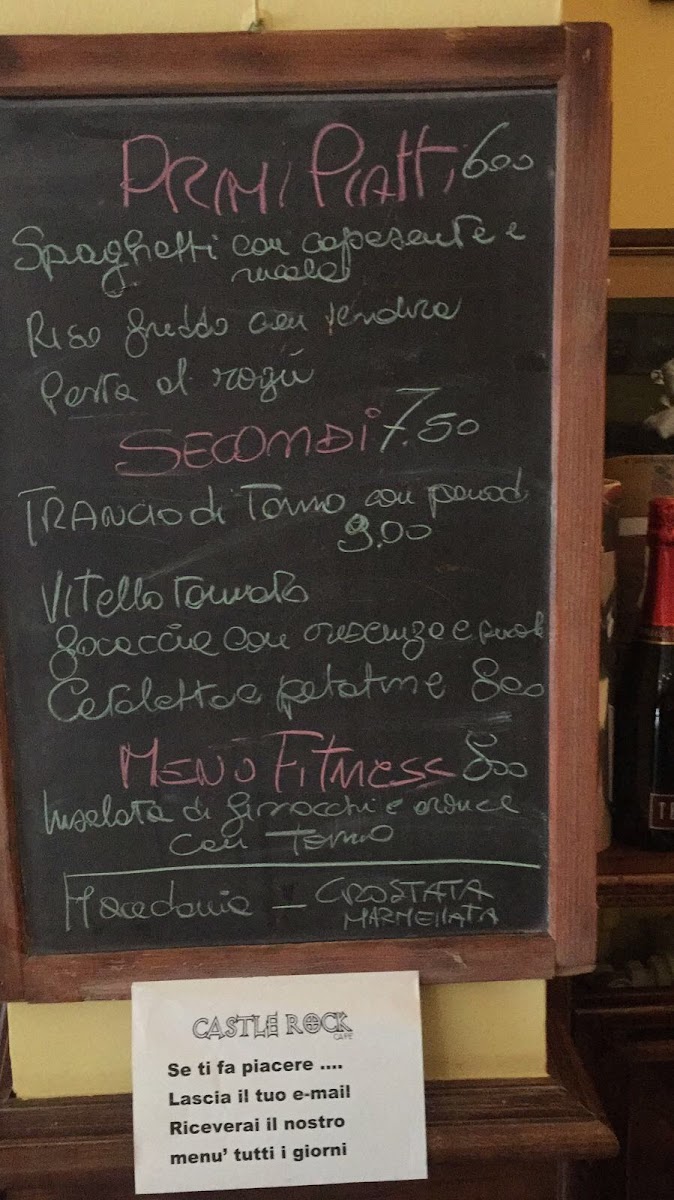 PRIMI PIATTI 600
Spaghetti con capesante e
rucola
Riso freddo con verdura
Pasta al ragù
SECONDI 7.50
TRANCIO di Tonno con pomod
9.00
Vitello Tonnato
focaccia con crescenza e
Cotoletta e patatine 800
MENÙ FITNESS 800
Insalata di finocchi e arance
con Tonno
Macedonia - CROSTATA
MARMELLATA
CASTLE ROCK
CAFE
Se ti fa piacere ....
Lascia il tuo e-mail
Riceverai il nostro
menu' tutti i giorni
TE